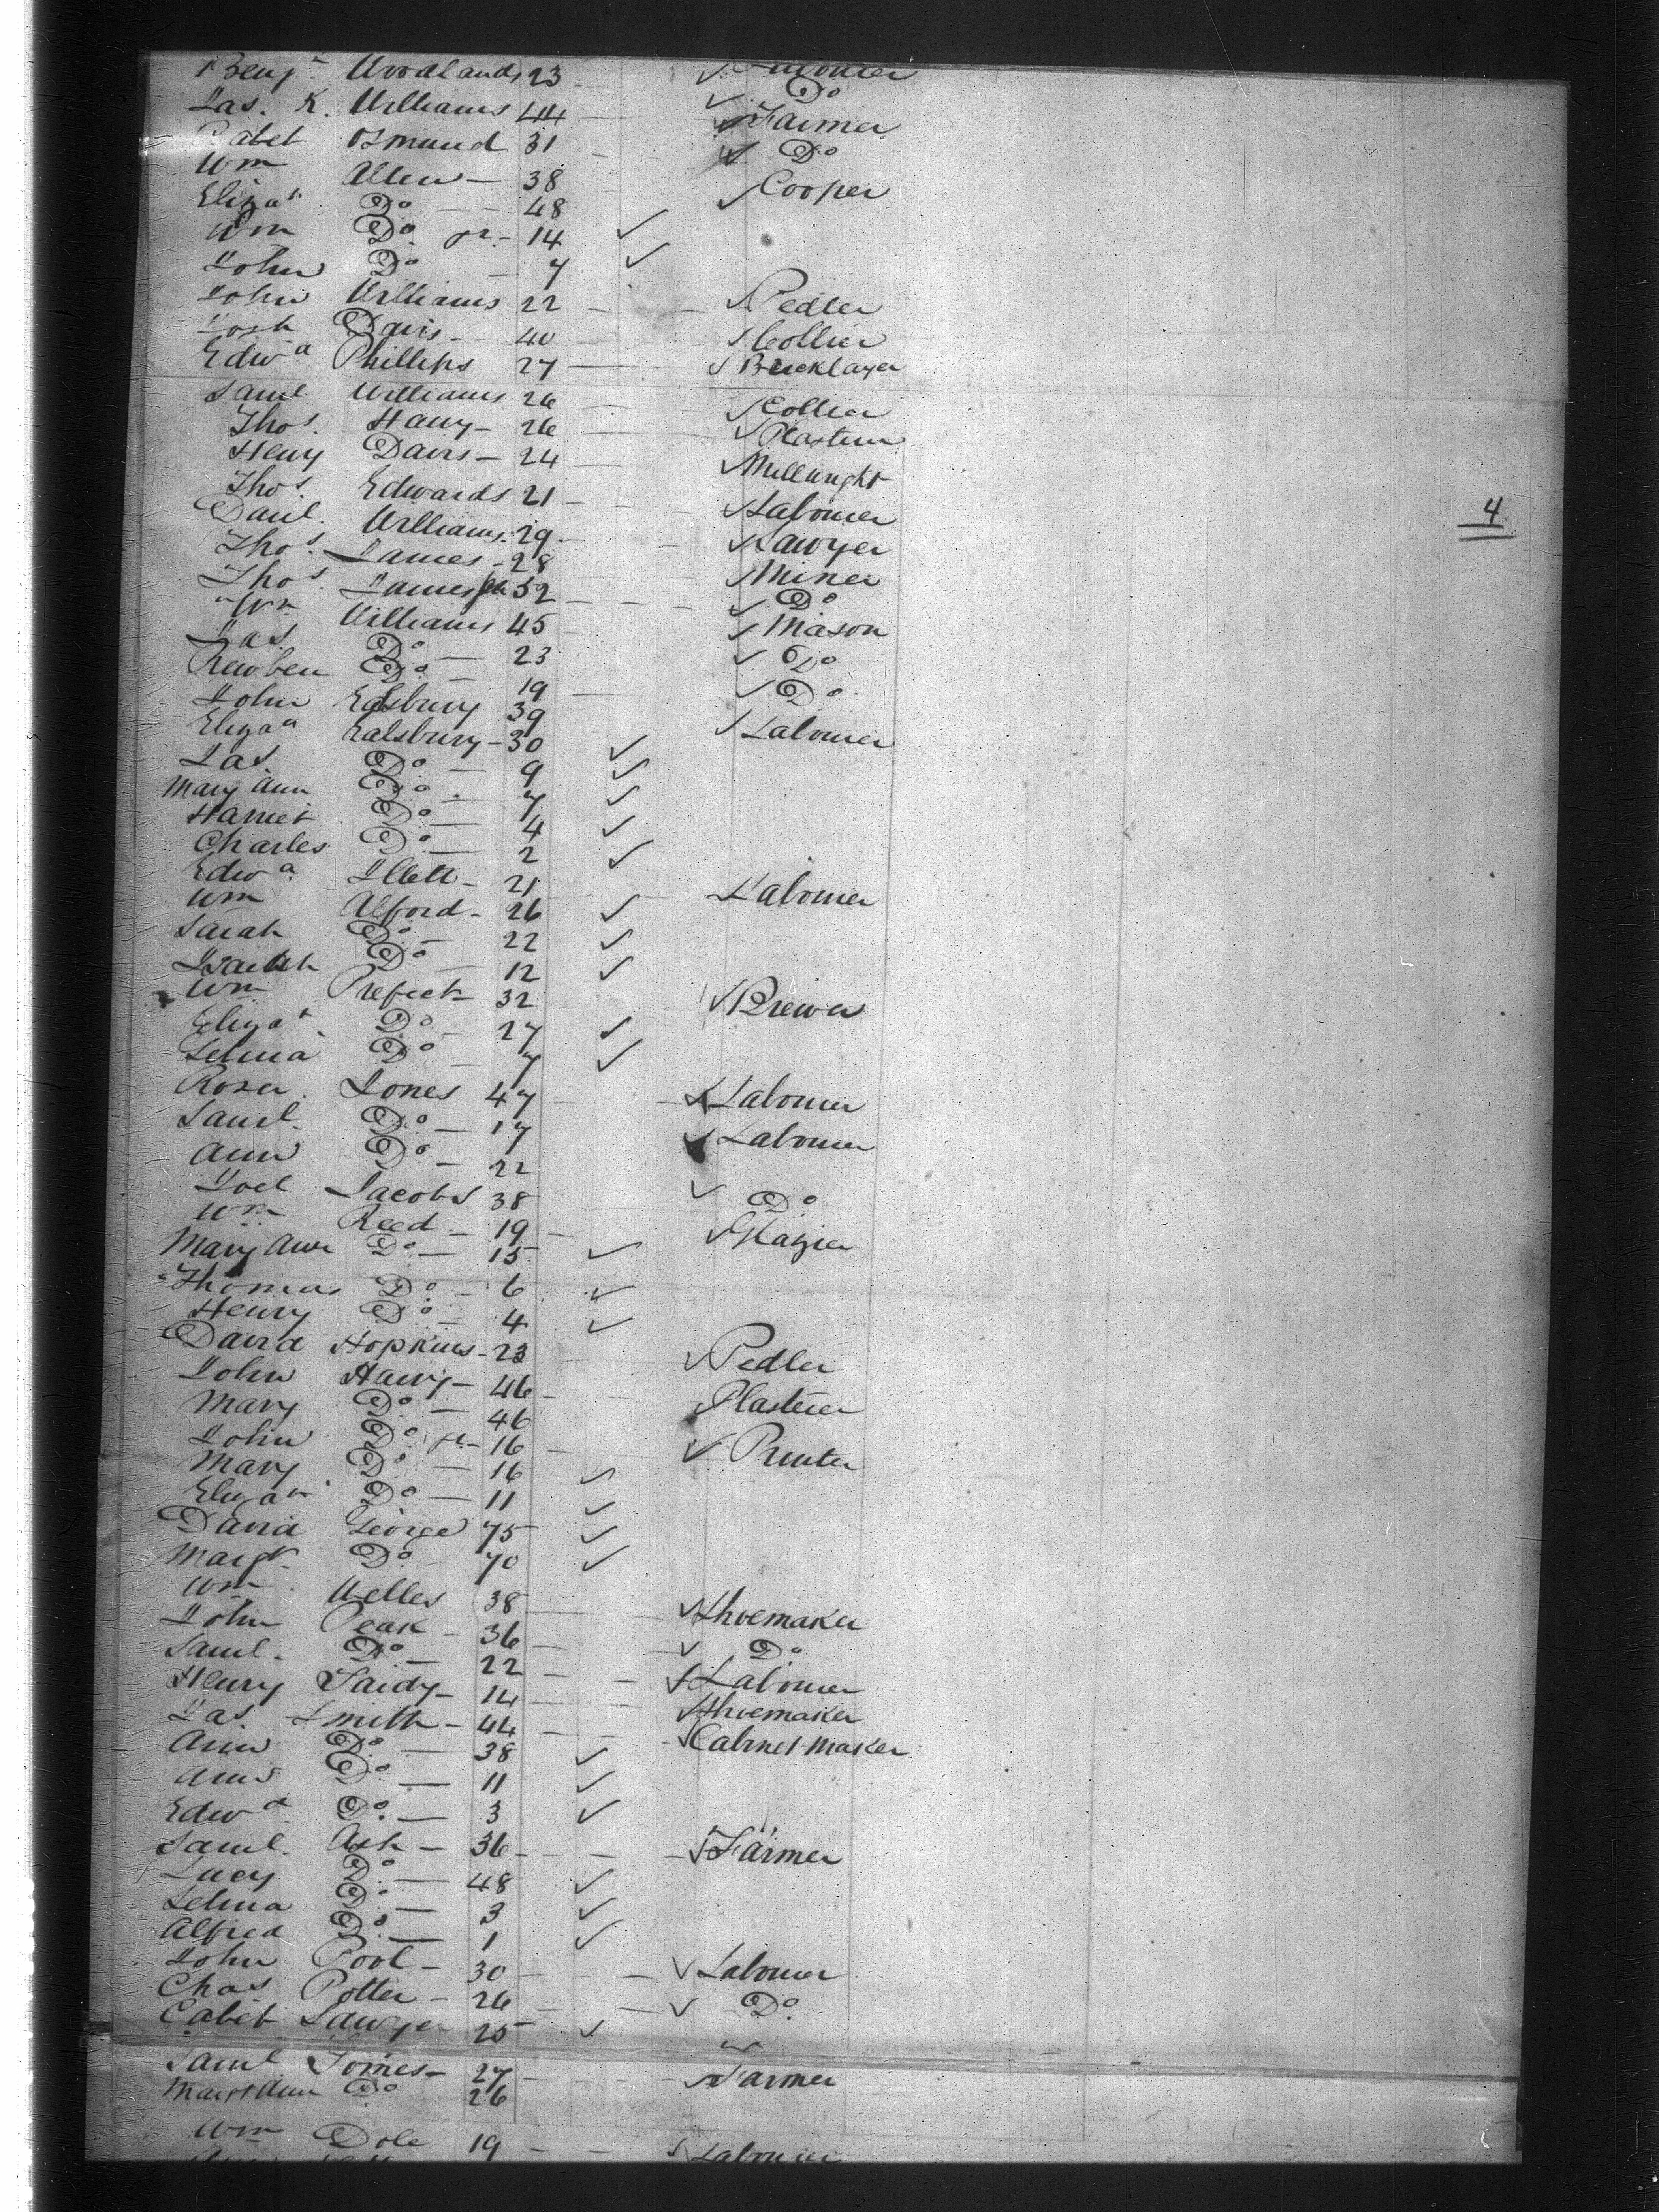 Benj Woodlands 23 Labourer
Jas. K. Williams 44 Do
Cabel Osmund 31 Farmer
Wm Allen 38 Do
Elizah Do 48 Cooper
Wm Do jr. 14
John Do 7
John Williams 22 Pedler
Josh Davis 40 Collier
Edwd Phillips 27 Bricklayer
Saml Williams 26 Collier
Thos. Harry 26 Plasterer
Henry Davis 24 Millwright
Thos. Edwards 21 Labourer
Danl. Williams 29 Sawyer
Thos. James 28 Miner
Thos James 52 Do
Wm Williams 45 Mason
Jas. Do 23 Do
Rewben Do 19 Do
John Edsbury 39 Labourer
Elizah Ealsbury 30
Jas. Do 9
Mary Ann Do 7
Harriet Do 4
Charles Do 2
Edwd. 21 Labourer
Wm Alford 26
Sarah Do 22
Do 12
Wm Prefect 32 Brewer
Elizah Do 27
Selina Do 7
Rosser Jones 47 Labourer
Saml. Do 17 Labourer
Ann Do 22
Joel Jacobs 38 Do
Wm Reed 19 Glazier
Mary Ann Do 15
Thomas Do 6
Henry Do 4
David Hopkins 23 Pedler
John Harry 46 Plasterer
Mary Do 46
John Do jr 16 Printer
Mary Do 16
Elizah Do 11
David George 75
Margt Do 70
Wm Welles 38 Shoemaker
John Peak 36 Do
Saml. Do 22 Labourer
Henry 14 Shoemaker
Jas. Smith 44 Cabinet Maker
Ann Do 38
Ann Do 11
Edwd Do 3
Saml. Ash 36 Farmer
Lucy Do 48
Selina Do 3
Alfred Do 1
John Pool 30 Labourer
Chas Potter 26 Do
Cabet Sawyer 25
Saml Tomes 27 Farmer
Maryt Ann Do 26
Wm Dole 19 Labourer
4